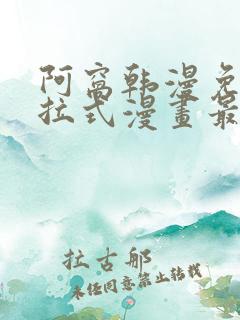 阿窩韩漫免
拉式漫畫最
拉古那
未经同意禁止转载